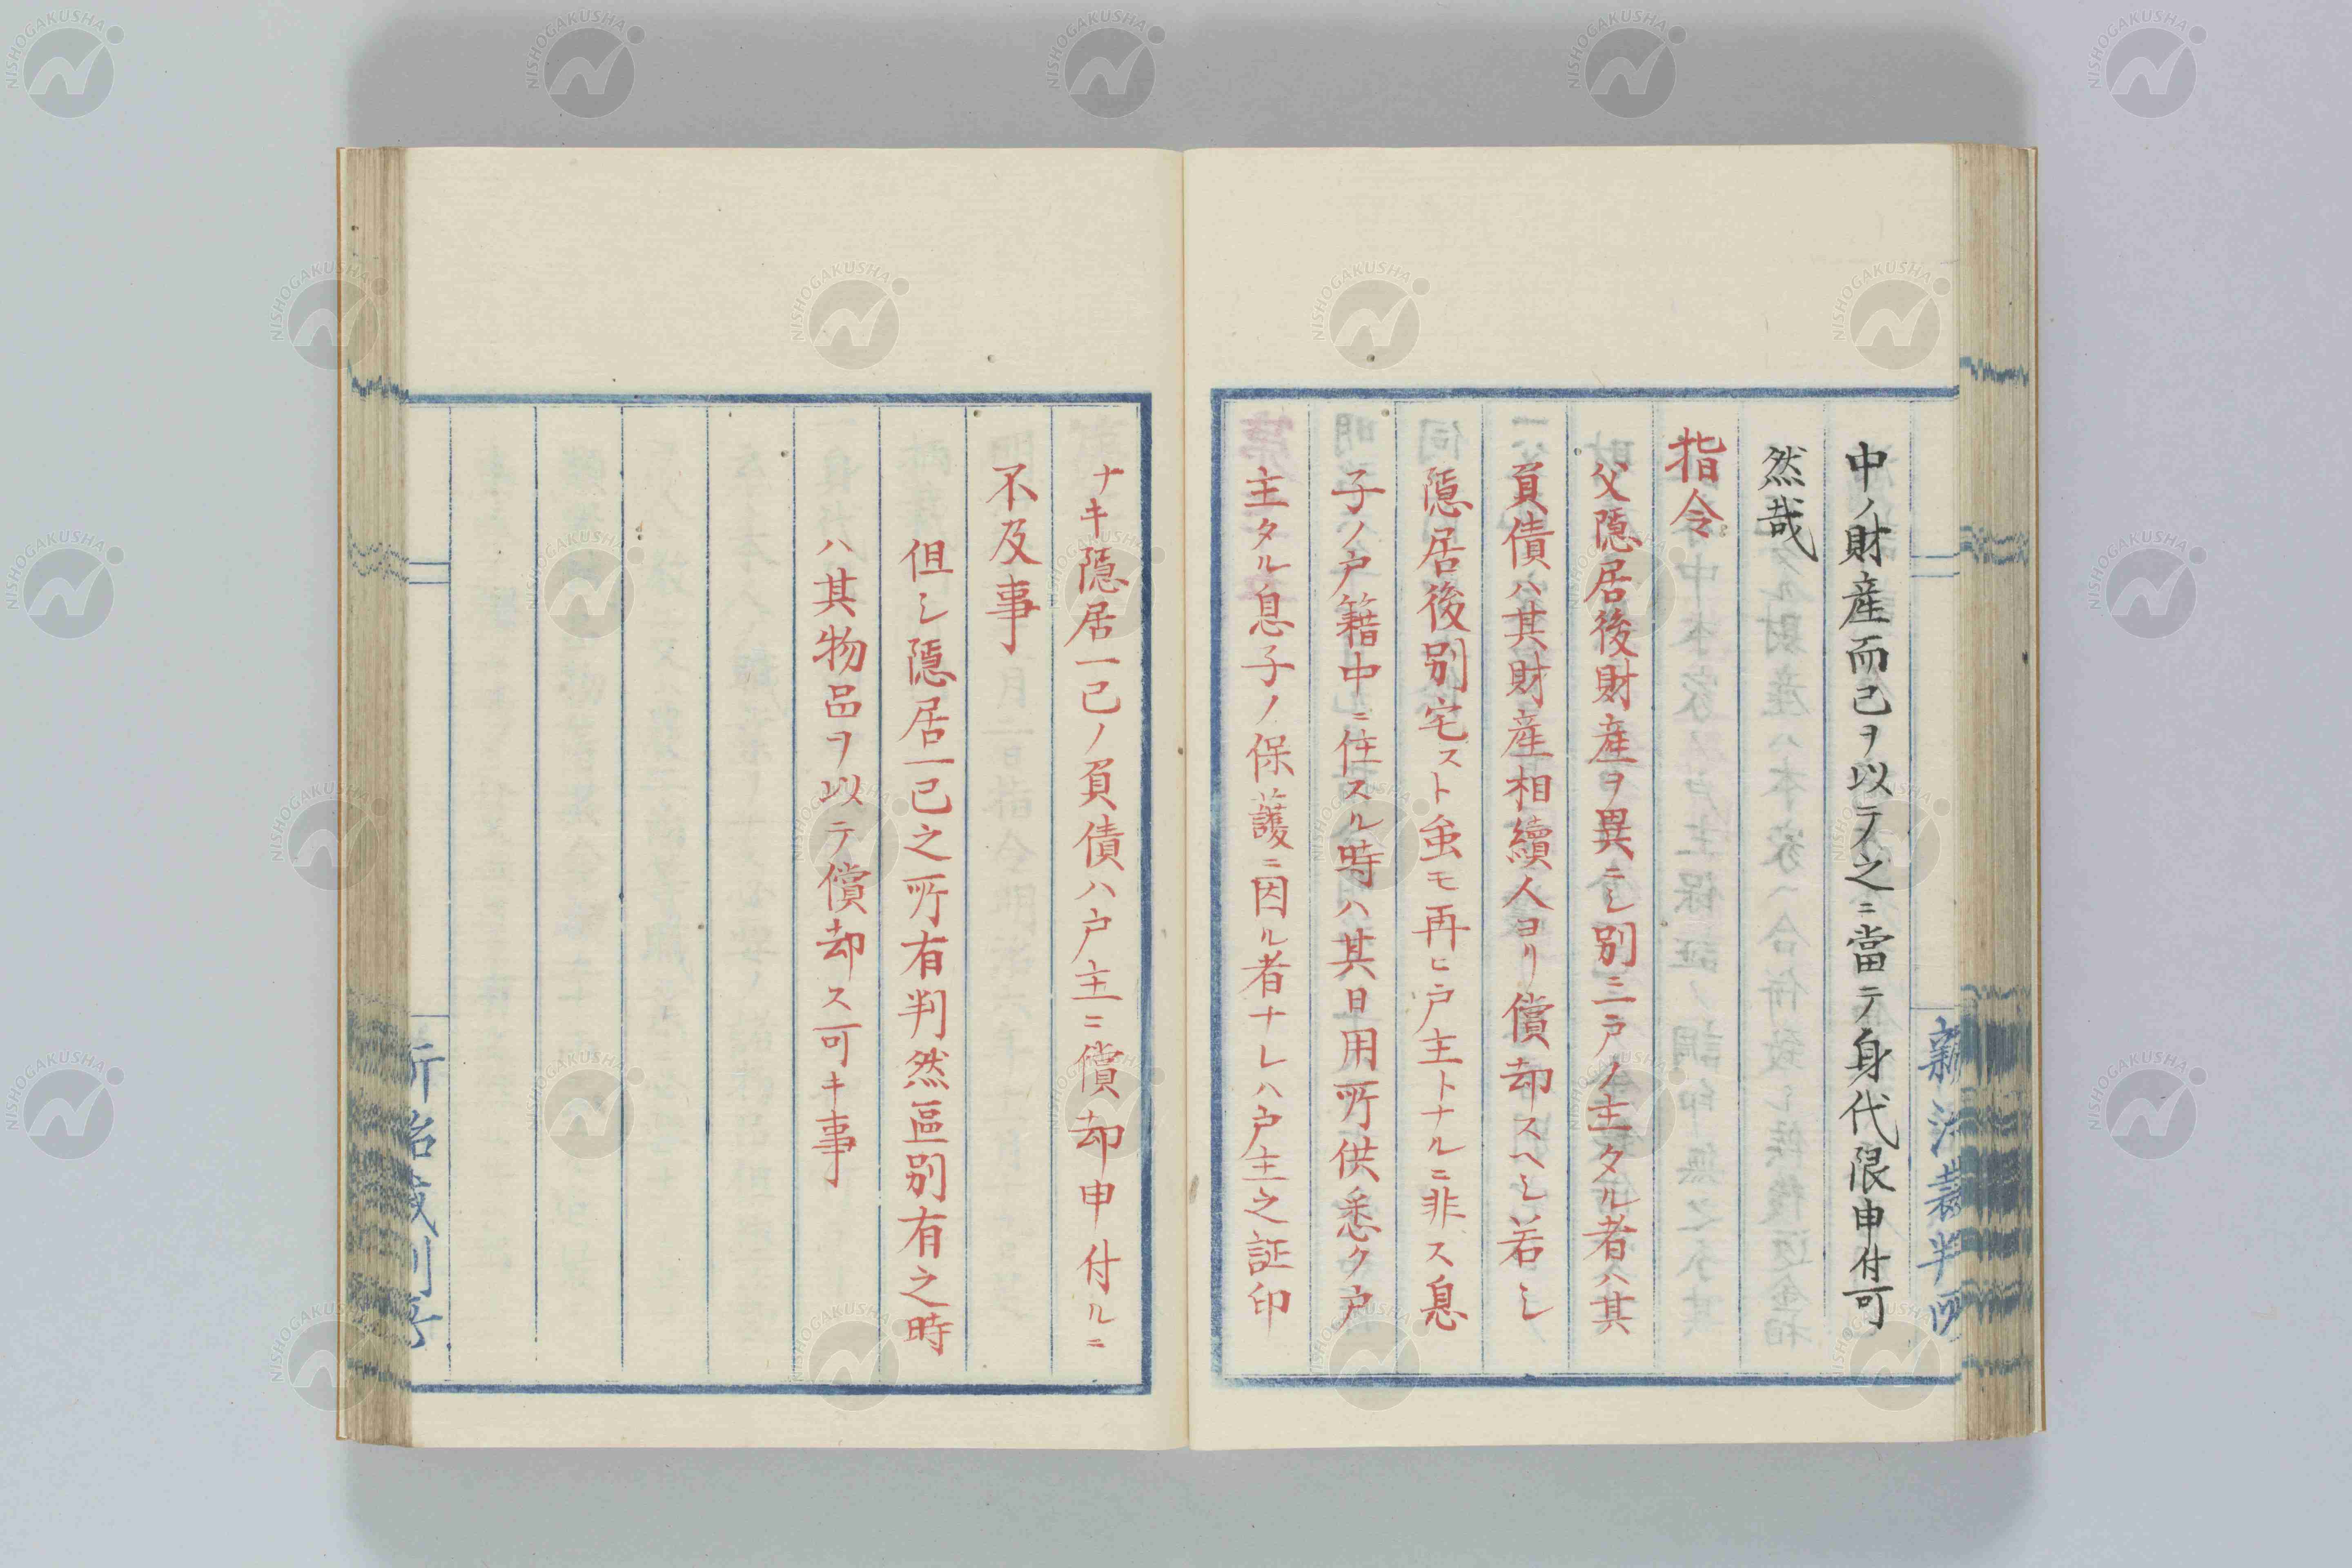 中ノ財産而已ヲ以テ之ニ當テ身代限申付可
然哉
指令
父隠居後財産ヲ異ニシ別ニ一戸ノ主タル者ハ其
負債ハ其財産相續人ヨリ償却スヘシ若シ
隠居後別宅スト虽モ再ヒ戸主トナルニ非ス息
子ノ戸籍中ニ住スル時ハ其日用所供悉ク戸
主タル息子ノ保護ニ因ル者ナレハ戸主之証印
ナキ隠居一己ノ負債ハ戸主ニ償却申付ルニ
不及事
但シ隠居一己之所有判然區別有之時
ハ其物品ヲ以テ償却ス可キ事
新潟裁判所
NISHOGAKUSHA